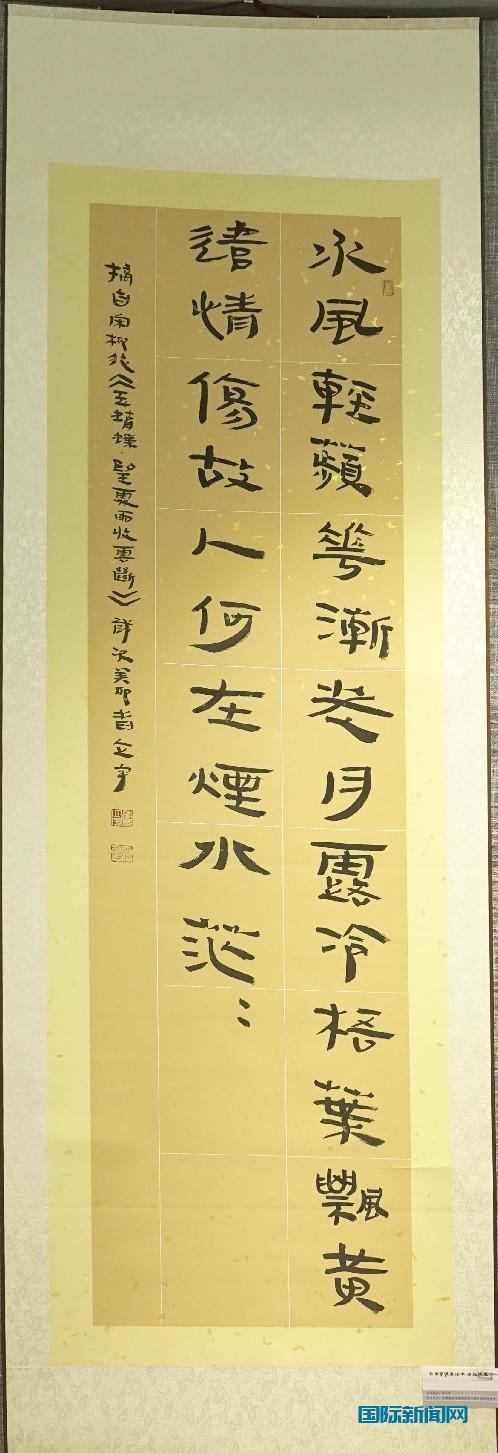 水風輕蘋華漸老月露冷梧葉飄黃
遣情傷故人何在煙水茫〻
摘自宋柳永《玉蝴蝶·望處雨收雲斷》歲次癸卯春
国际新闻网